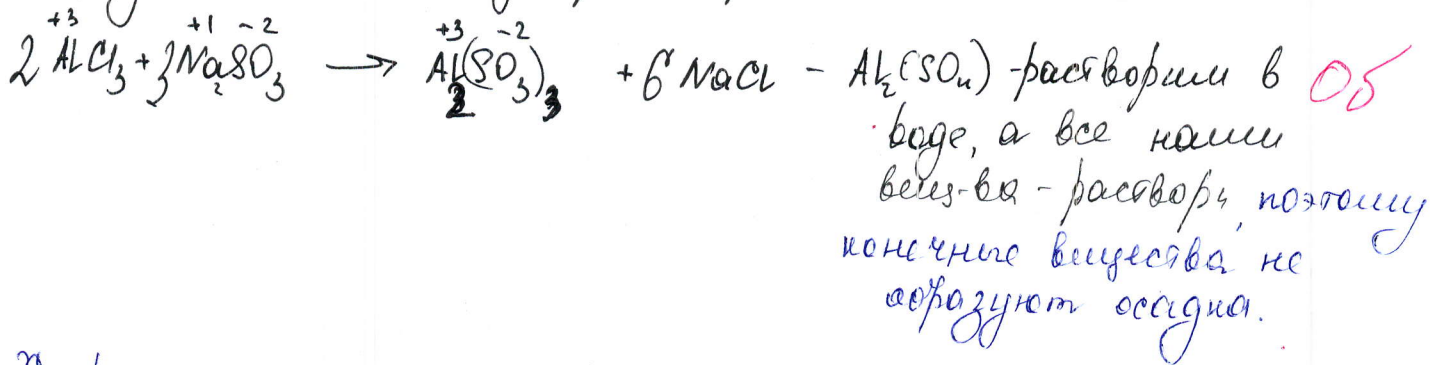 2 AlCl₃ + 3Na₂SO₃ → Al₂(SO₃)₃ + 6 NaCl - Al₂(SO₄) - растворим в Об
+3 +1 -2 +3 -2
воде, а все наши
вещ-ва - растворы, поэтому
конечные вещества не
образуют осадка.